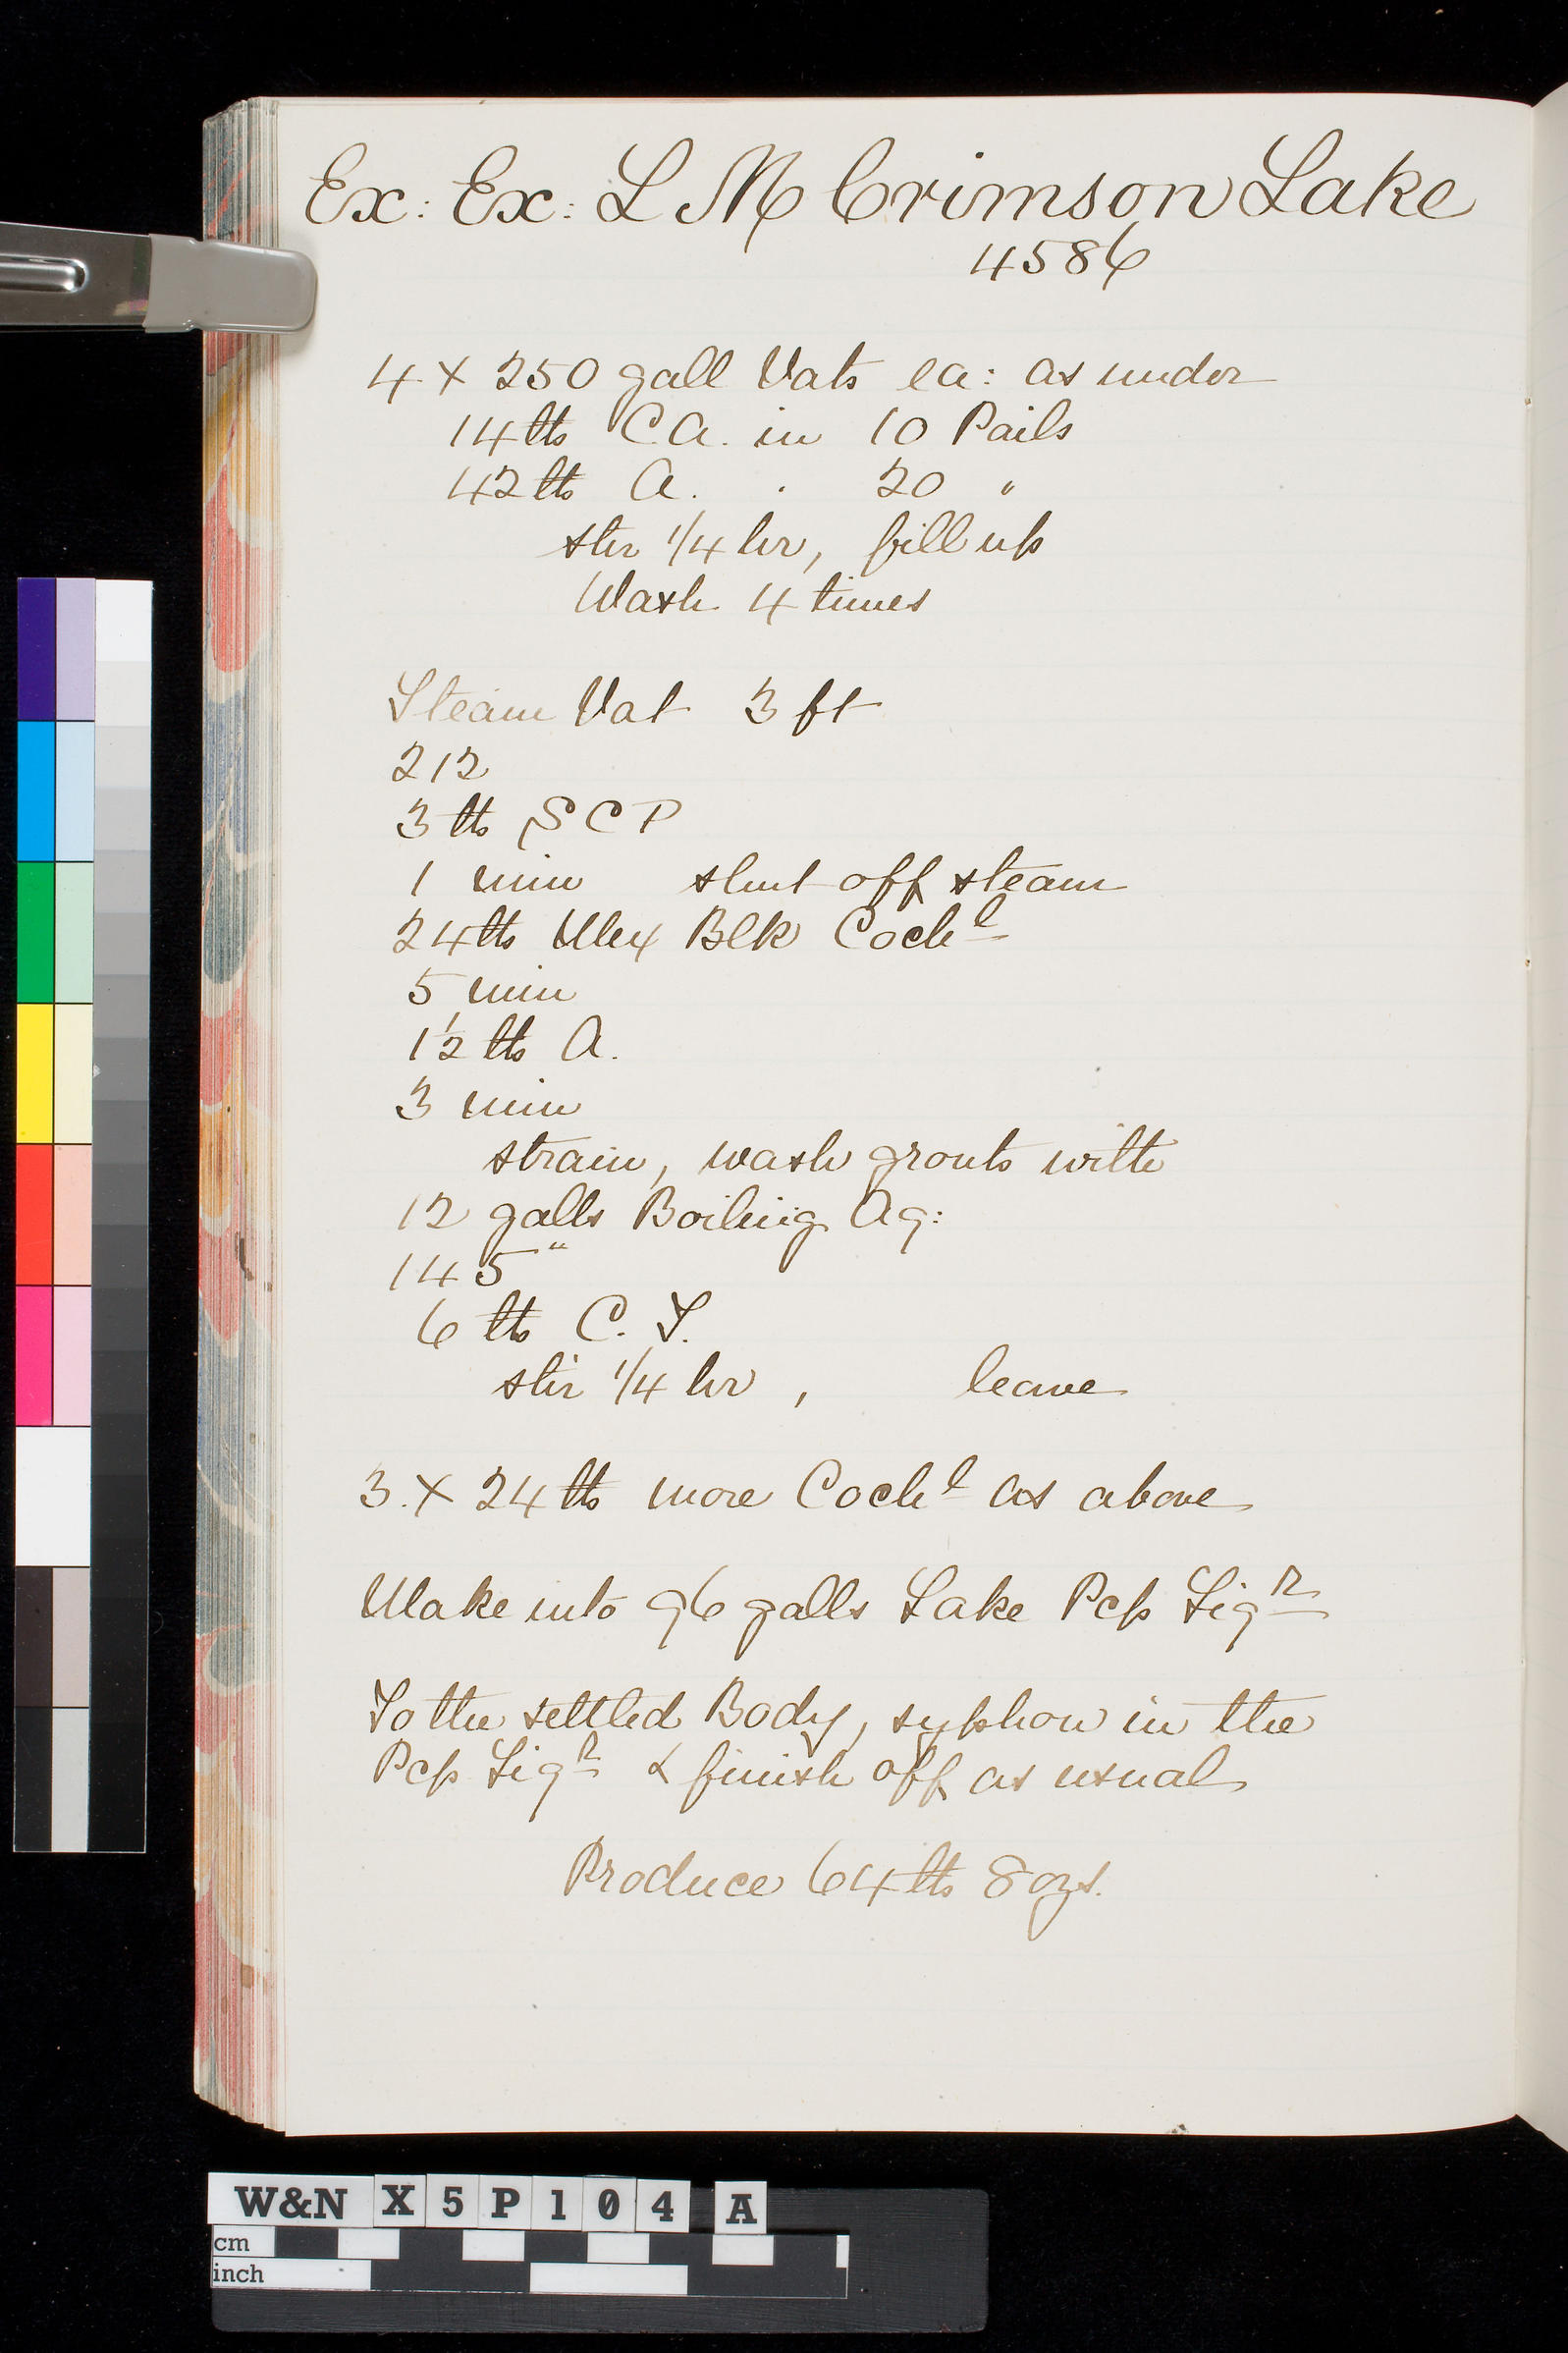 Ex: Ex: L M Crimson Lake
4586
4 x 250 gall Vats ea: as under
14 lbs C.A. in 10 Pails
42 lbs A. . 20 "
stir 1/4 hr, fill up
Wash 4 times
Steam Vat 3 ft
212
3 lbs S C P
1 min shut off steam
24 lbs Mex Blk Cochl
5 min
1½ lbs A.
3 min
strain, wash grouts with
12 galls Boiling Aq:
145"
6 lbs C. T.
stir 1/4 hr, leave
3. x 24 lbs more Cochl as above
Make into 96 galls Lake Pcp Liqr
To the settled Body, syphon in the
Pcp Liqr & finish off as usual
Produce 64 lbs 8 ozs.
W&N X5P104 A
cm
inch